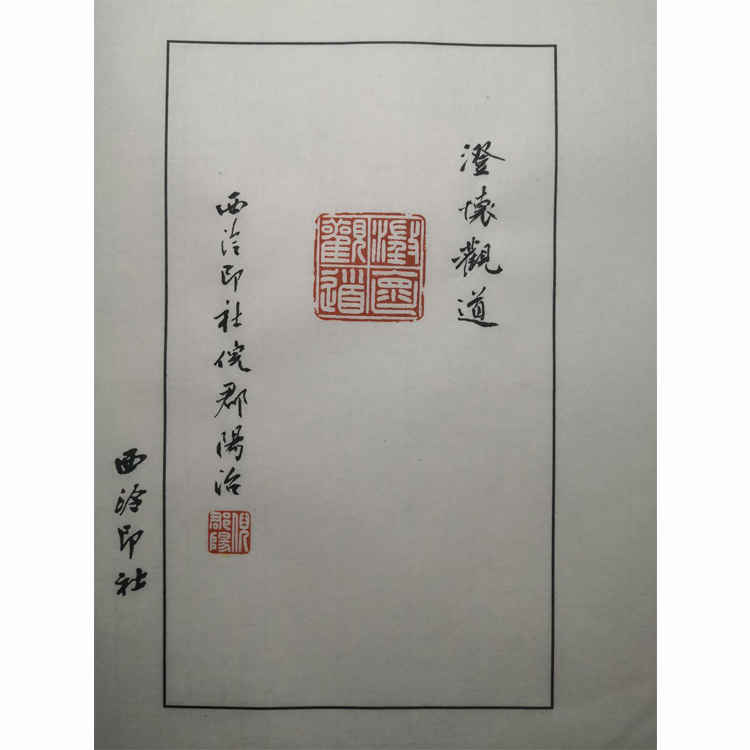 澄懷觀道
澂褱觀道
西泠印社倪郡陽治
倪郡陽
西泠印社